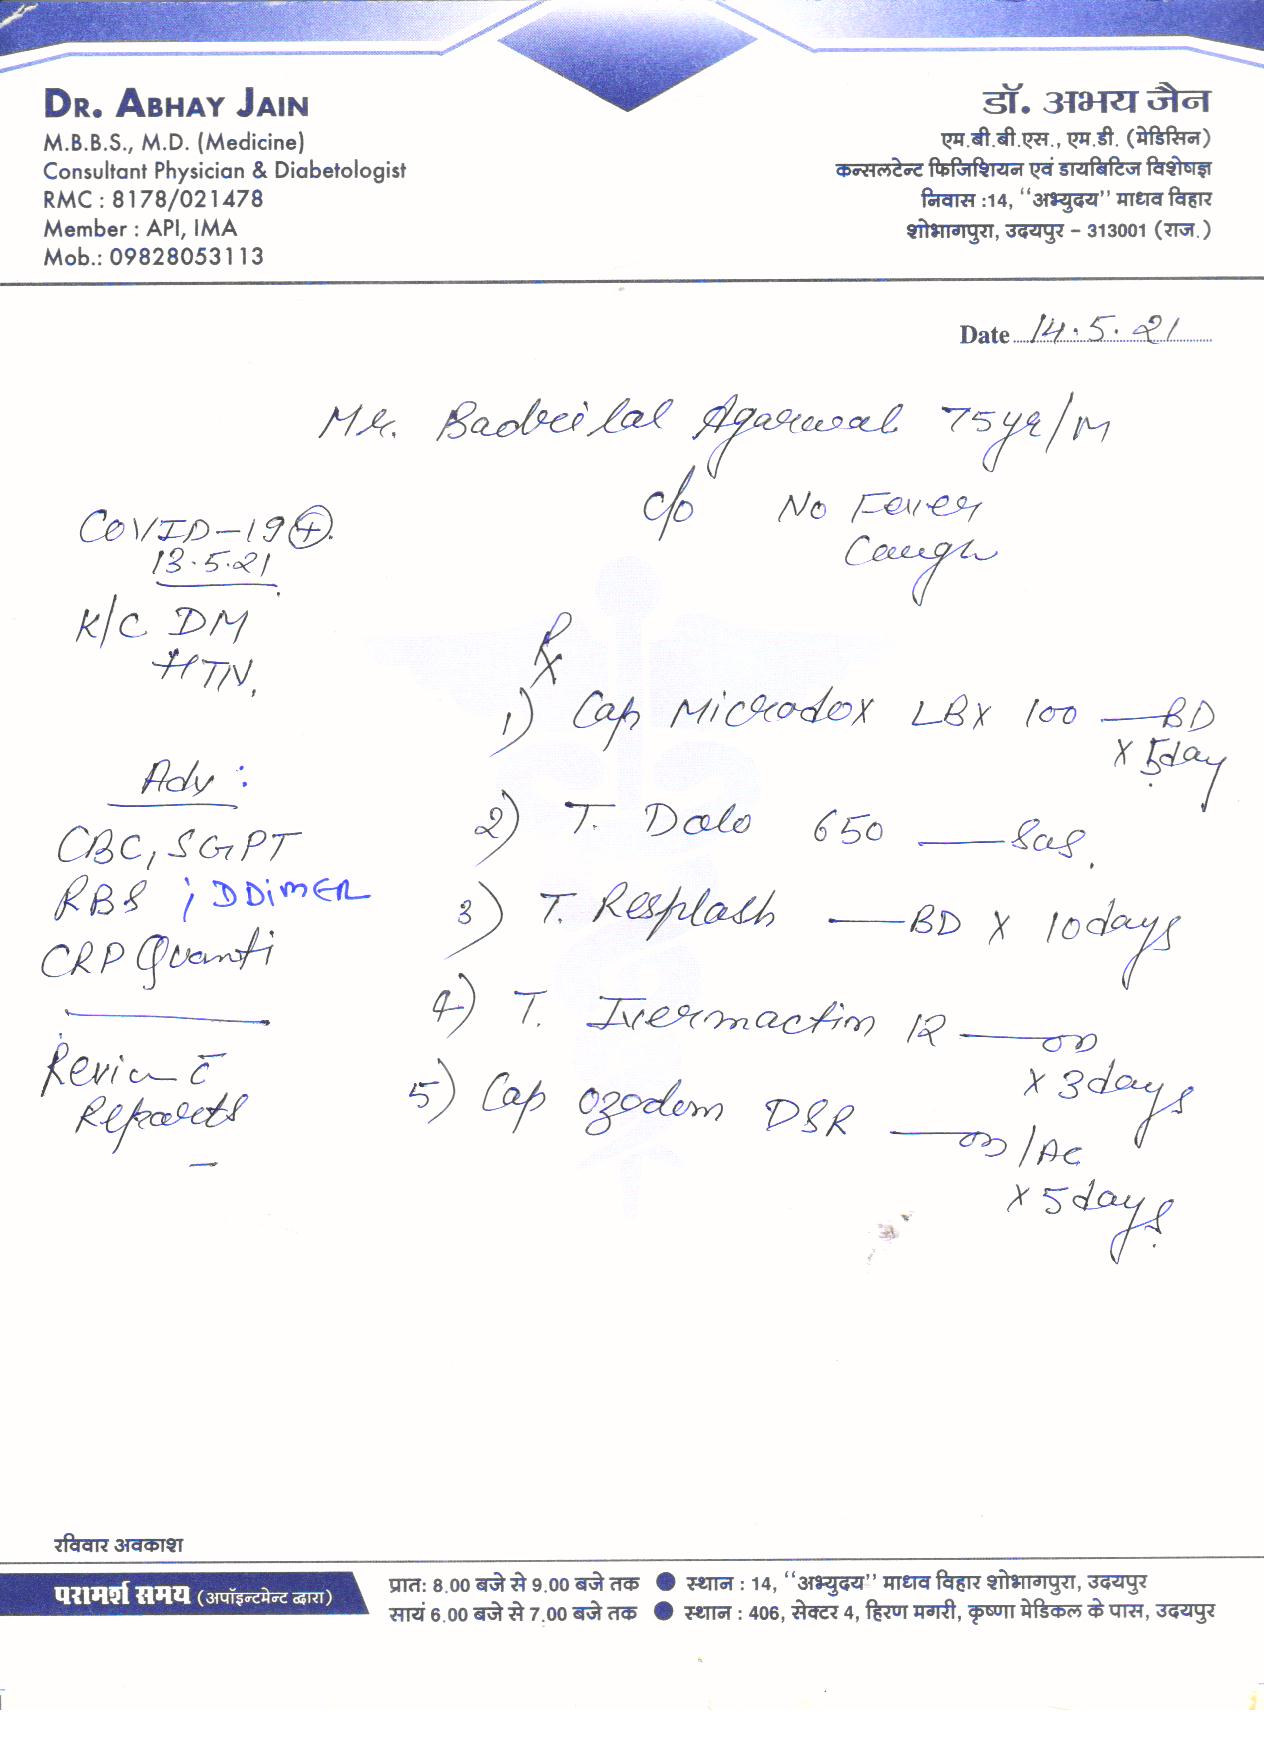 DR. ABHAY JAIN
M.B.B.S., M.D. (Medicine)
Consultant Physician & Diabetologist
RMC : 8178/021478
Member : API, IMA
Mob.: 09828053113
डॉ. अभय जैन
एम.बी.बी.एस., एम.डी. (मेडिसिन)
कन्सलटेन्ट फिजिशियन एवं डायबिटिज विशेषज्ञ
निवास :14, ‘‘अभ्युदय’’ माधव विहार
शोभागपुरा, उदयपुर - 313001 (राज.)
Date 14.5.21
Mr. Badrilal Agarwal 75yr/M
c/o No Fever
Caugh
COVID-19 (+)
13.5.21
K/C DM
HTN.
Adv :
CBC, SGPT
RBS ; D DIMER
CRP Quanti
Review c̄
Reports
Rx
1) Cap Microdox LBX 100 — BD
x 5day
2) T. Dolo 650 — SOS.
3) T. Resplash — BD x 10days
4) T. Ivermactin 12 — OD
x 3days
5) Cap Ozodom DSR — OD/AC
x 5days.
रविवार अवकाश
परामर्श समय (अपॉइन्टमेन्ट द्वारा)
प्रात: 8.00 बजे से 9.00 बजे तक ● स्थान : 14, ‘‘अभ्युदय’’ माधव विहार शोभागपुरा, उदयपुर
सायं 6.00 बजे से 7.00 बजे तक ● स्थान : 406, सेक्टर 4, हिरण मगरी, कृष्णा मेडिकल के पास, उदयपुर